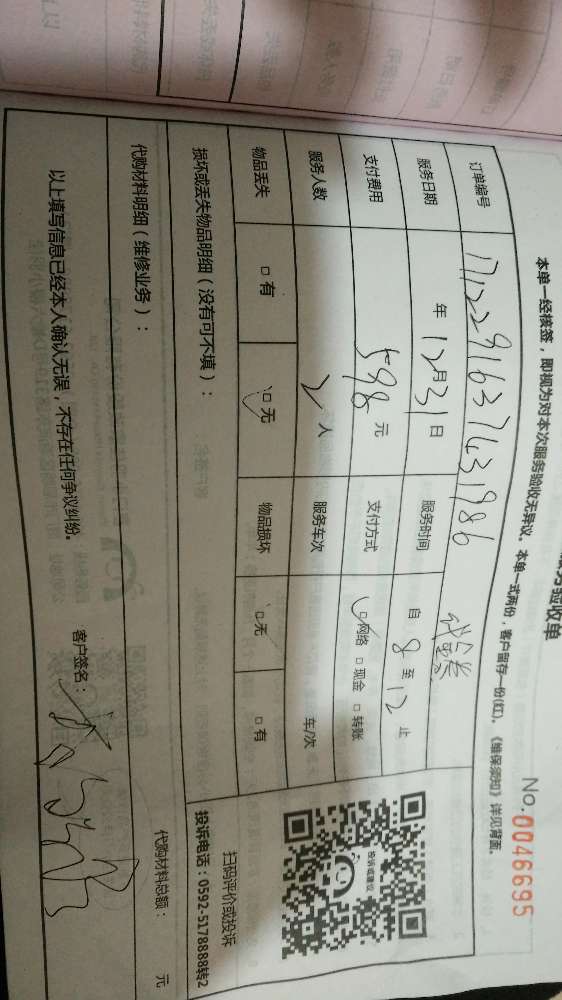 服务验收单
No.0046695
本单一经核签，即视为对本次服务验收无异议。本单一式两份，客户留存一份(红)。《维保须知》详见背面。
订单编号 1712291637431986
服务日期 年 12月31日 服务时间 自 8 至 12 止
支付费用 598 元 支付方式 □网络 □现金 □转账
服务人数 2 人 服务车次 车/次
物品丢失 □有 □无 物品损坏 □无 □有
损坏或丢失物品明细（没有可不填）：
投诉或建议
扫码评价或投诉
投诉电话：0592-5178888转2
代购材料明细（维修业务）：
代购材料总额： 元
以上填写信息已经本人确认无误，不存在任何争议纠纷。
客户签名：